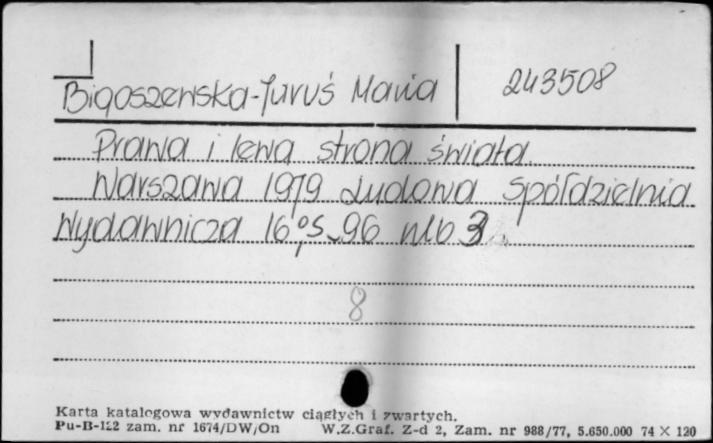 Bigoszewska-Juruś Maria 243508
Prawa i lewa strona świata
Warszawa 1979 Ludowa Spółdzielnia
Wydawnicza 16°, s. 96 nlb 3.
8
Karta katalogowa wydawnictw ciągłych i zwartych.
Pu-B-122 zam. nr 1674/DW/On W.Z.Graf. Z-d 2, Zam. nr 988/77, 5.650.000 74 X 120